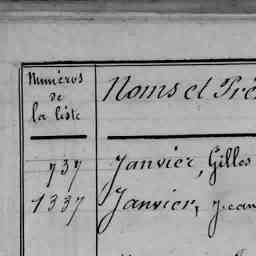 Numéros
de
la liste
Noms et Pré
737
Janvier, Gilles
1337
Janvier, Jean